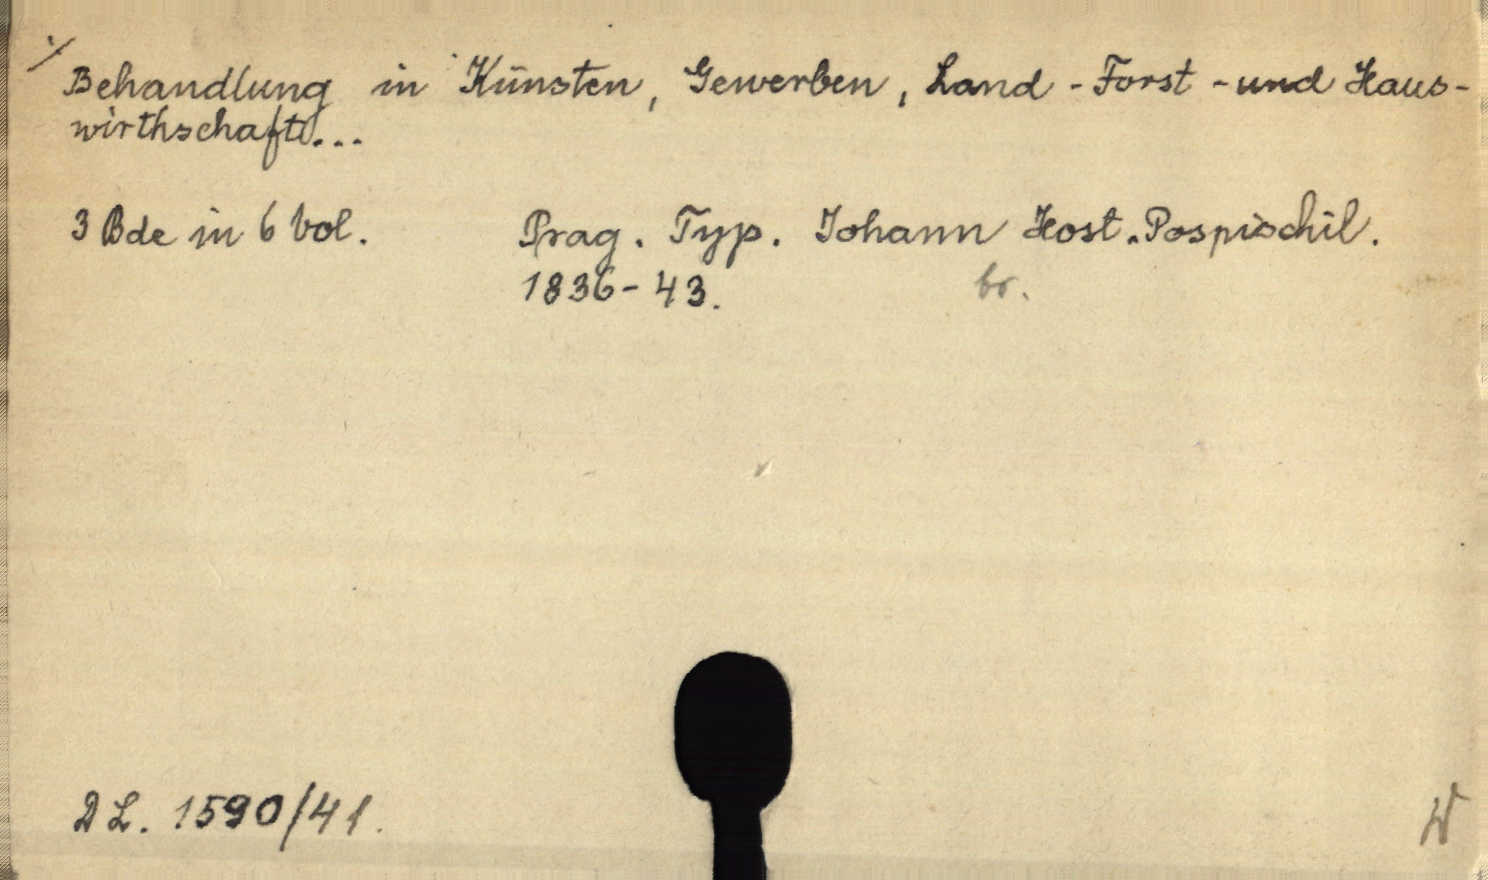 Behandlung in Künsten, Gewerben, Land-Forst-und Haus-
wirthschaft...
3 Bde in 6 Vol. Prag. Typ. Johann Host. Pospischil.
1836-43. br.
DL. 1590/41.
W